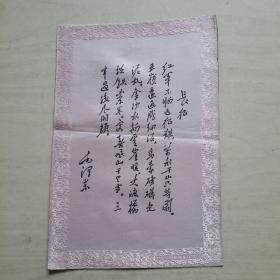 長征
紅軍不怕遠征難萬水千山只等閑
五嶺逶迤騰細浪烏蒙磅礴走
泥丸金沙水拍雲崖暖大渡橋
橫鐵索寒更喜岷山千里雪三
軍過後盡開顏
毛澤東